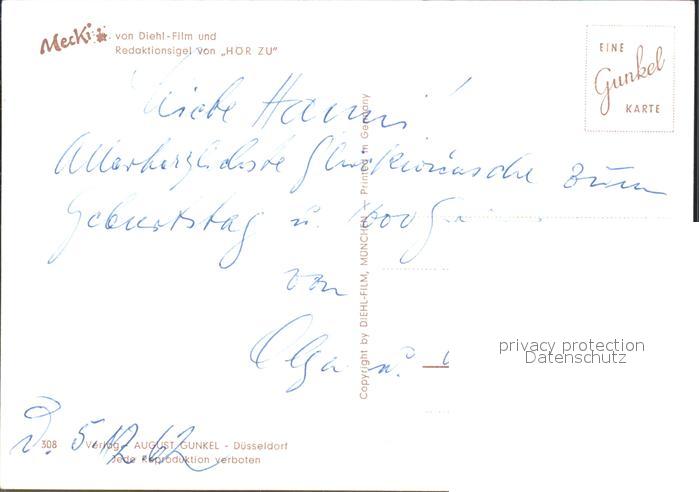 Mecki von Diehl-Film und
Redaktionsigel von „HÖR ZU"
EINE
Gunkel
KARTE
Liebe Hanni!
Allerherzlichste Glückwünsche zum
Geburtstag u. 1000
von
Olga u.
D. 5.12.62
Copyright by DIEHL-FILM, MÜNCHEN X Printed in Germany
privacy protection
Datenschutz
308 Verlag - AUGUST GUNKEL - Düsseldorf
Jede Reproduktion verboten